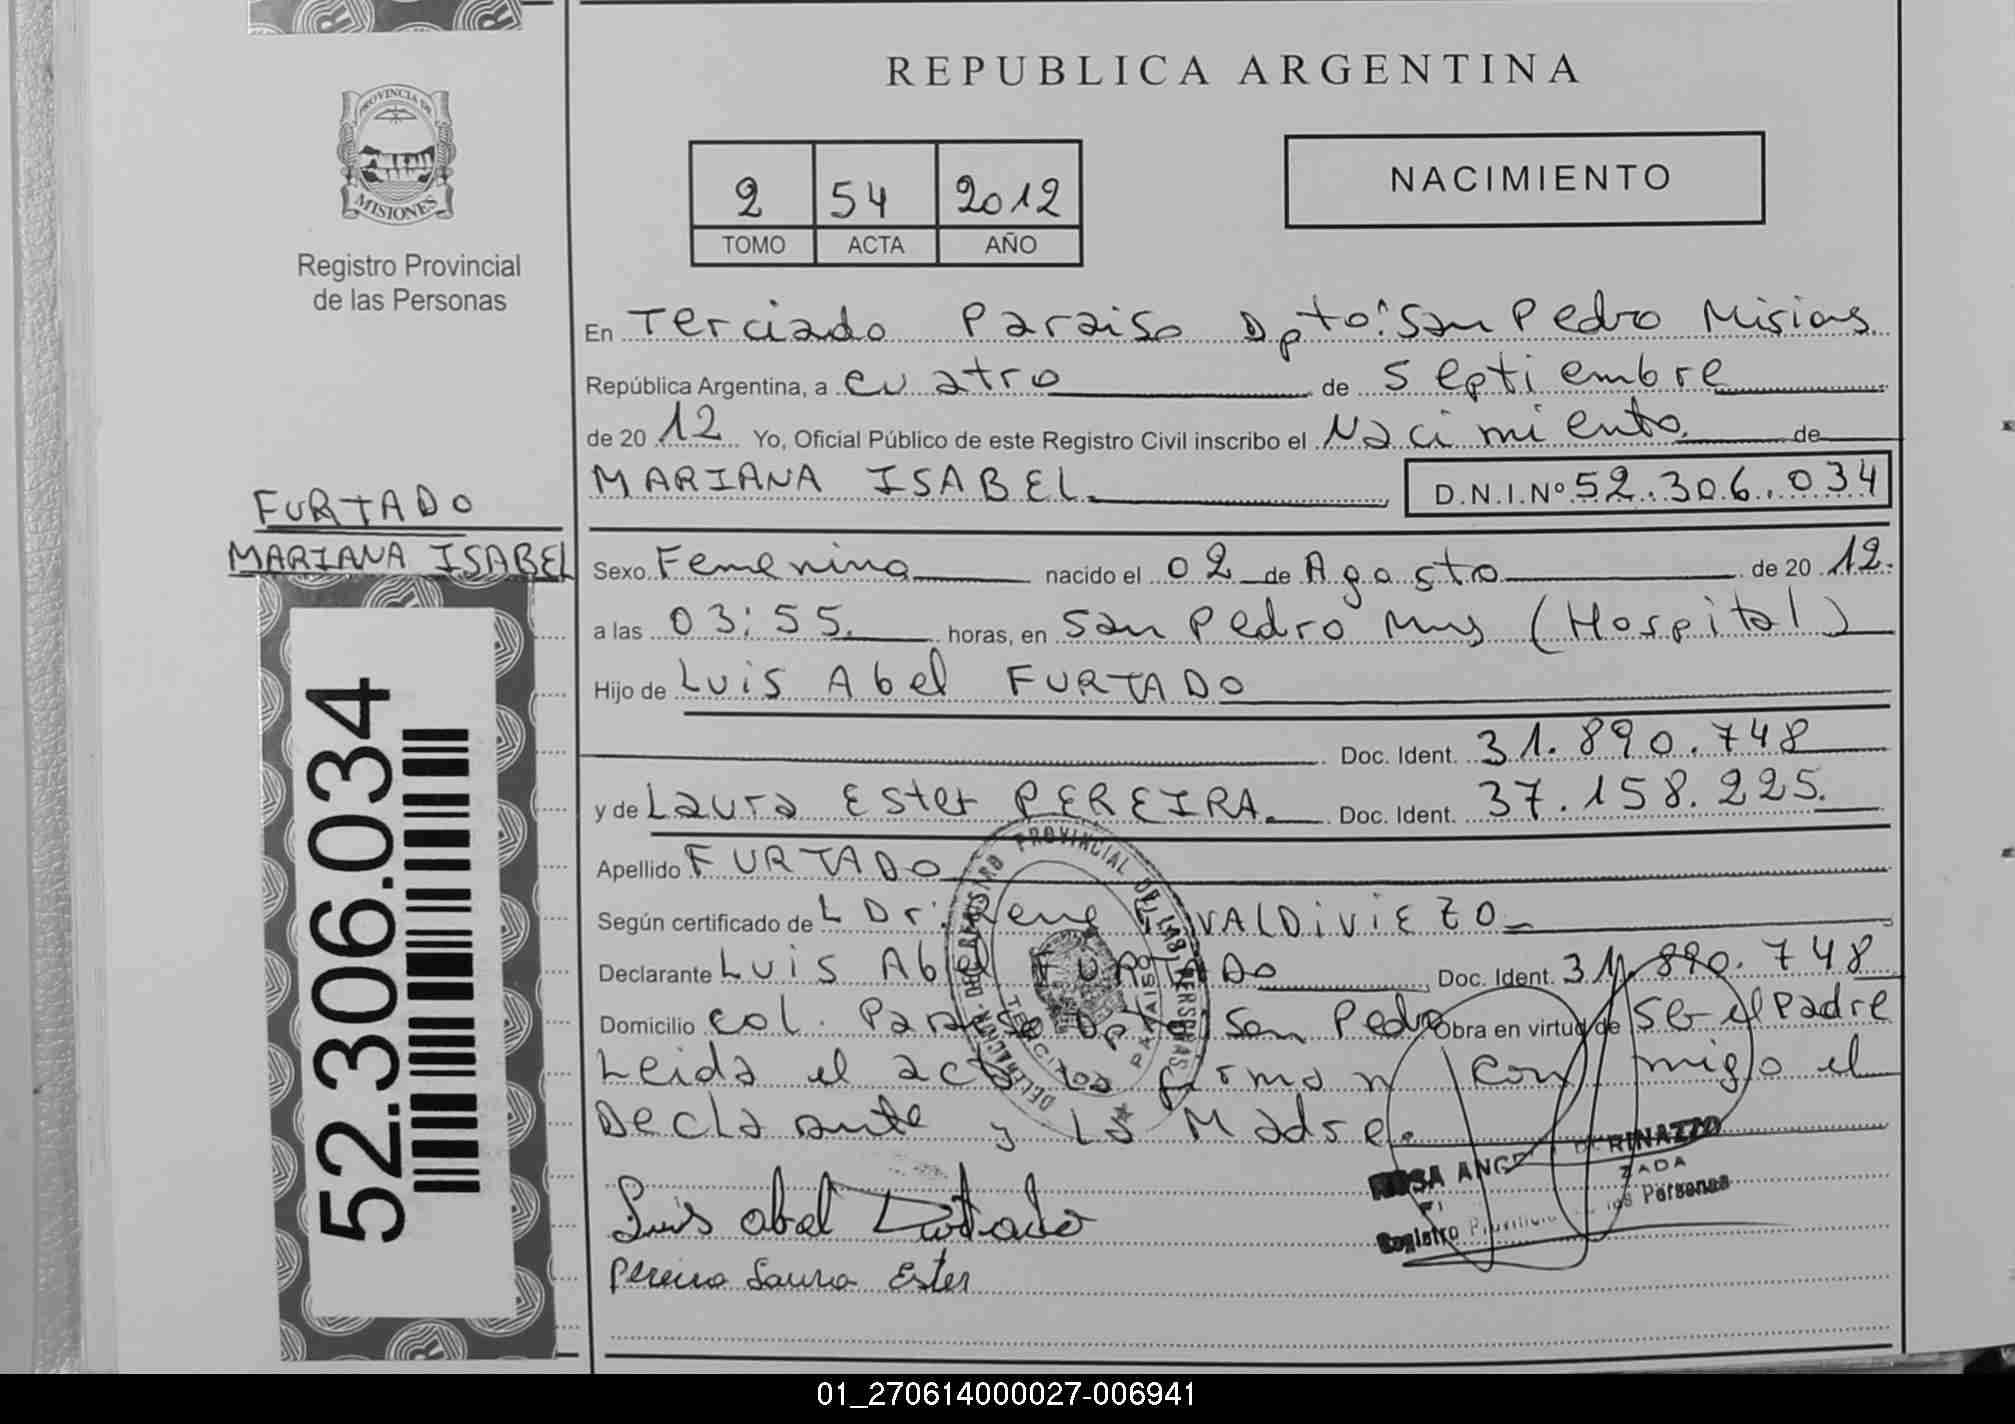 REPUBLICA ARGENTINA
PROVINCIA DE
MISIONES
Registro Provincial
de las Personas
2 54 2012
TOMO ACTA AÑO
NACIMIENTO
En Terciado Paraiso Dpto: San Pedro Misions
República Argentina, a cuatro de Septiembre
de 20 12 Yo, Oficial Público de este Registro Civil inscribo el Nacimiento de
MARIANA ISABEL D.N.I.Nº 52.306.034
FURTADO
MARIANA ISABEL
52.306.034
Sexo Femenino nacido el 02 de Agosto de 20 12.
a las 03:55. horas, en San Pedro Mns (Hospital)
Hijo de Luis Abel FURTADO
Doc. Ident. 31.890.748
y de Laura Ester PEREIRA. Doc. Ident. 37.158.225.
Apellido FURTADO
Según certificado de L Dr: Rene VALDIVIEZO
Declarante Luis Abel FURTADO Doc. Ident. 31.890.748
Domicilio col. Paraiso Dpto San Pedro Obra en virtud de ser el padre
Leida el acta la firman con migo el
Declarante y La Madre.
REGISTRO PROVINCIAL DE LAS PERSONAS
PARAISO
ROSA
RINAZZO
ZADA
Registro Provincial de las Personas
Luis abel Furtado
Pereira Laura Ester
01_270614000027-006941